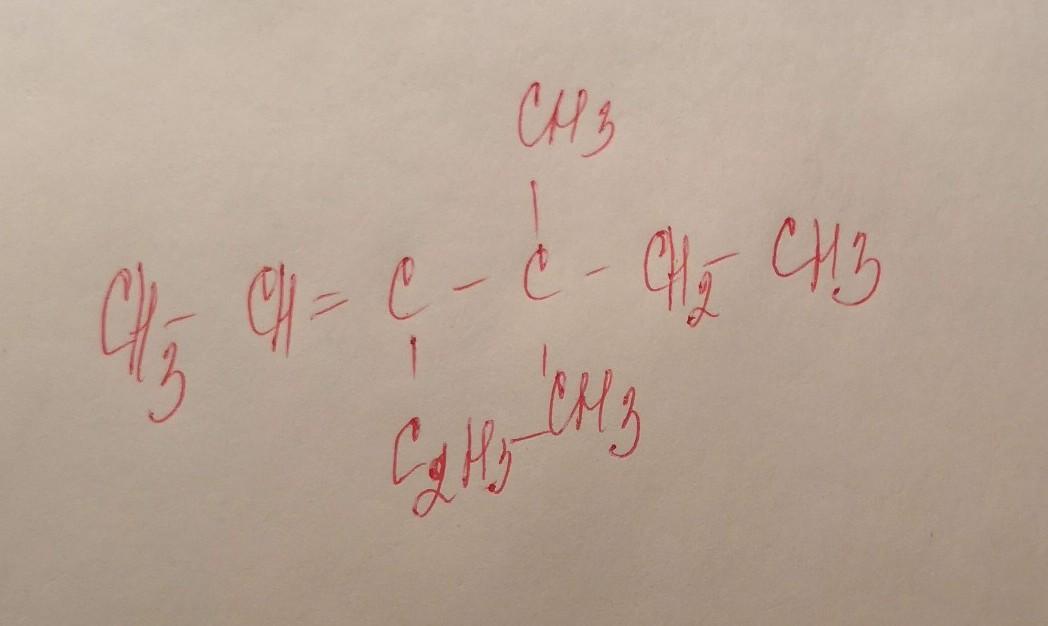 CH3
CH3 - CH = C - C - CH2 - CH3
C2H5 CH3